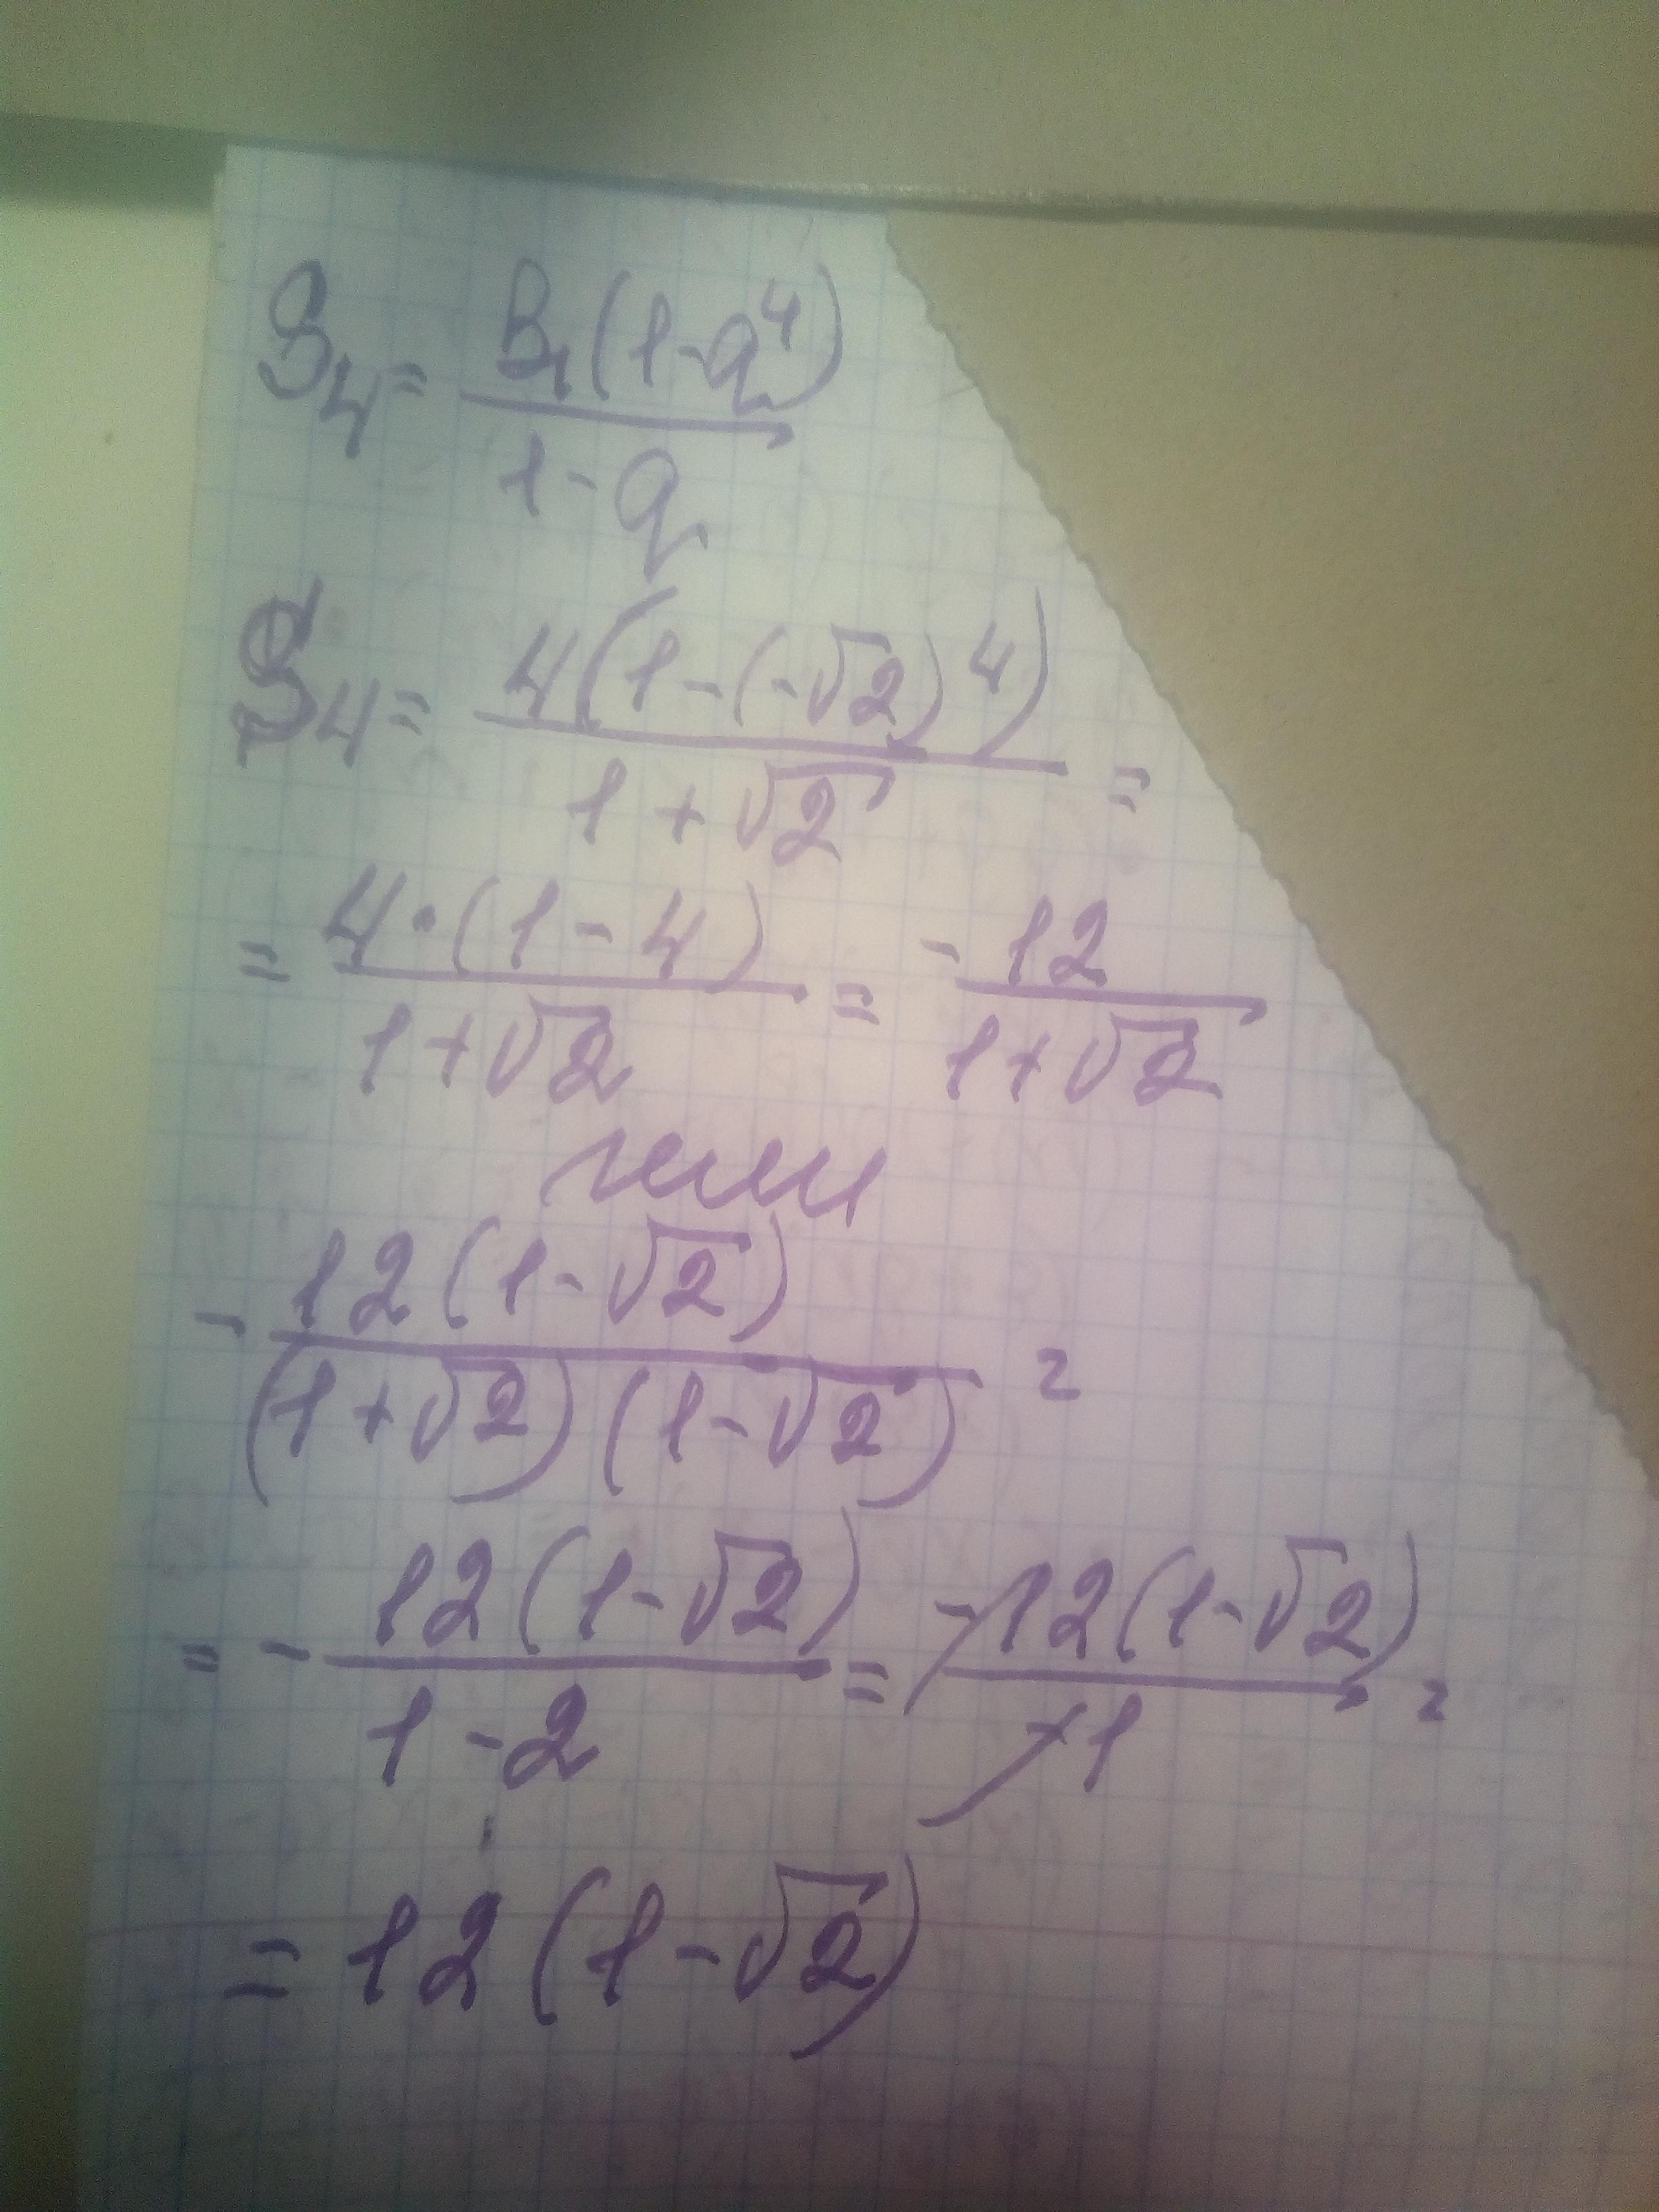 S₄ = B₁(1-q⁴) / 1-q
S₄ = 4(1-(-√2)⁴) / 1+√2 =
= 4·(1-4) / 1+√2 = -12 / 1+√2
или
- 12(1-√2) / (1+√2)(1-√2) =
= - 12(1-√2) / 1-2 = -12(1-√2) / -1 =
= 12(1-√2)